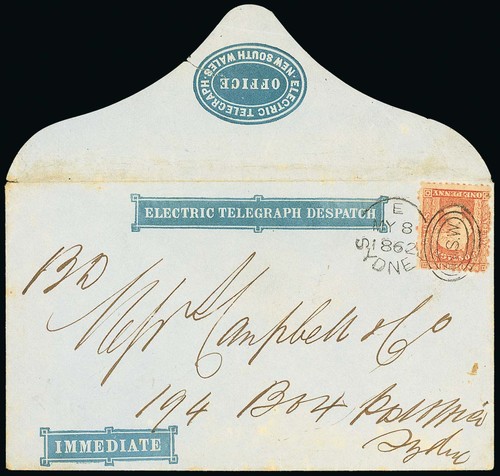 ELECTRIC TELEGRAPH
NEW SOUTH WALES
OFFICE
ONE PENNY
ELECTRIC TELEGRAPH DESPATCH
SYDNEY
MY 8
1862
NSW
Messrs Campbell & Co
194 Box Post Office
Sydney
IMMEDIATE